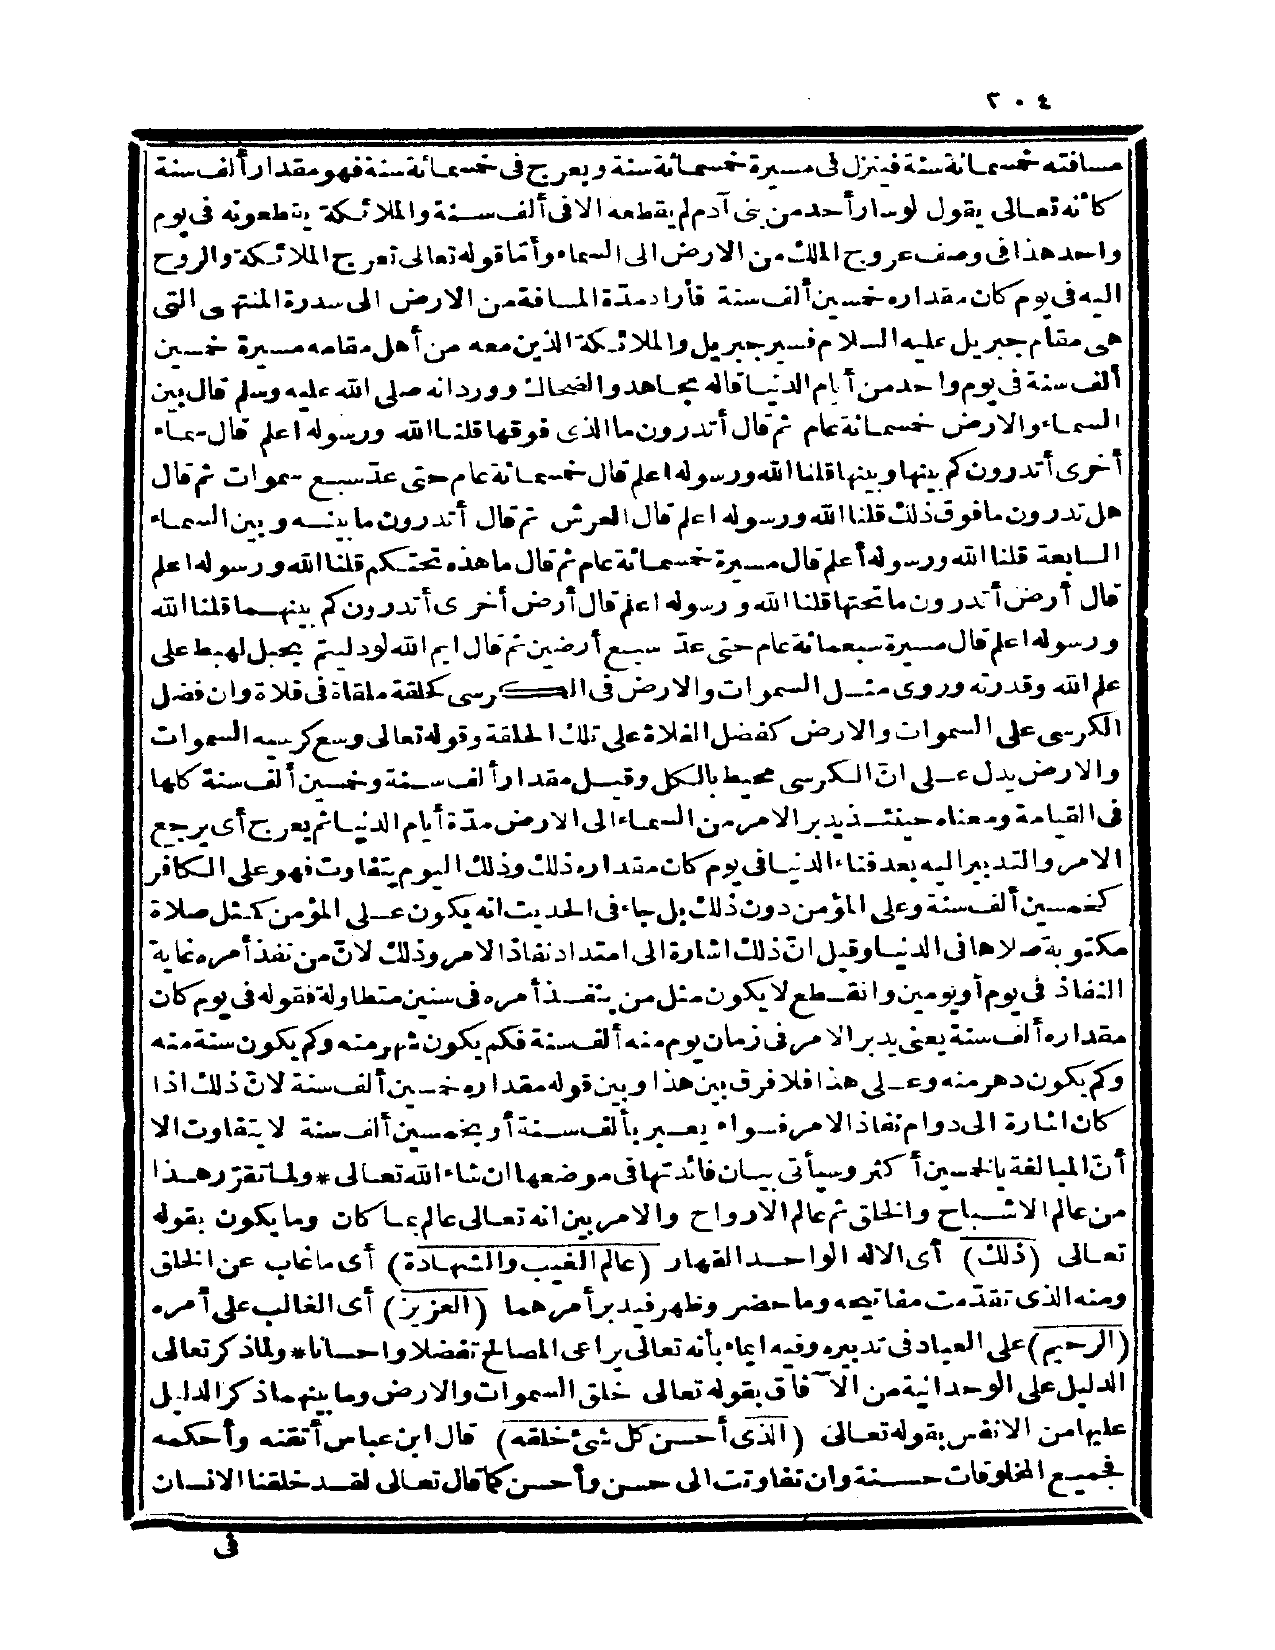 ٢٠٤
مسافته خمسمائة سنة فينزل فى مسيرة خمسمائة سنة ويعرج فى خمسمائة سنة فهو مقدار ألف سنة
كأنه تعالى يقول لو سار أحد من بنى آدم لم يقطعه الا فى ألف سنة والملائكة يقطعونه فى يوم
واحد هذا فى وصف عروج الملك من الارض الى السماء وأمّا قوله تعالى تعرج الملائكة والروح
اليه فى يوم كان مقداره خمسين ألف سنة فأراد مدّة المسافة من الارض الى سدرة المنتهى التى
هى مقام جبريل عليه السلام فسير جبريل والملائكة الذين معه من أهل مقامه مسيرة خمسين
ألف سنة فى يوم واحد من أيام الدنيا قاله مجاهد والضحاك وورد انه صلى الله عليه وسلم قال بين
السماء والارض خمسمائة عام ثم قال أتدرون ما الذى فوقها قلنا الله ورسوله اعلم قال سماء
أخرى أتدرون كم بينها وبينها قلنا الله ورسوله اعلم قال خمسمائة عام حتى عدّ سبع سموات ثم قال
هل تدرون ما فوق ذلك قلنا الله ورسوله اعلم قال العرش ثم قال أتدرون ما بينه وبين السماء
السابعة قلنا الله ورسوله أعلم قال مسيرة خمسمائة عام ثم قال ما هذه تحتكم قلنا الله ورسوله اعلم
قال أرض أتدرون ما تحتها قلنا الله ورسوله اعلم قال أرض أخرى أتدرون كم بينهما قلنا الله
ورسوله اعلم قال مسيرة سبعمائة عام حتى عدّ سبع أرضين ثم قال ايم الله لو دليتم بحبل لهبط على
علم الله وقدرته وروى مثل السموات والارض فى الكرسى كحلقة ملقاة فى فلاة وان فضل
الكرسى على السموات والارض كفضل الفلاة على تلك الحلقة وقوله تعالى وسع كرسيه السموات
والارض يدل على انّ الكرسى محيط بالكل وقيل مقدار ألف سنة وخمسين ألف سنة كلها
فى القيامة ومعناه حينئذ يدبر الامر من السماء الى الارض مدّة أيام الدنيا ثم يعرج أى يرجع
الامر والتدبير اليه بعد فناء الدنيا فى يوم كان مقداره ذلك وذلك اليوم يتفاوت فهو على الكافر
كخمسين ألف سنة وعلى المؤمن دون ذلك بل جاء فى الحديث انه يكون على المؤمن كمثل صلاة
مكتوبة صلاها فى الدنيا وقيل انّ ذلك اشارة الى امتداد نفاذ الامر وذلك لانّ من نفذ أمره غاية
النفاذ فى يوم أو يومين وانقطع لا يكون مثل من ينفذ أمره فى سنين متطاولة فقوله فى يوم كان
مقداره ألف سنة يعنى يدبر الامر فى زمان يوم منه ألف سنة فكم يكون شهر منه وكم يكون سنة منه
وكم يكون دهر منه وعلى هذا فلا فرق بين هذا وبين قوله مقداره خمسين ألف سنة لانّ ذلك اذا
كان اشارة الى دوام نفاذ الامر فسواء يعبر بألف سنة أو بخمسين ألف سنة لا يتفاوت الا
أنّ المبالغة بالخمسين أكثر وسيأتى بيان فائدتها فى موضعها ان شاء الله تعالى * ولما تقرّر هذا
من عالم الاشباح والخلق ثم عالم الارواح والامر بين انه تعالى عالم بما كان وما يكون بقوله
تعالى (ذلك) أى الاله الواحد القهار (عالم الغيب والشهادة) أى ما غاب عن الخلق
ومنه الذى تقدّمت مفاتيحه وما حضر وظهر فيدبر أمرهما (العزيز) أى الغالب على أمره
(الرحيم) على العباد فى تدبيره وفيه ايماء بأنه تعالى يراعى المصالح تفضلا واحسانا * ولما ذكر تعالى
الدليل على الوحدانية من الآفاق بقوله تعالى خلق السموات والارض وما بينهما ذكر الدليل
عليها من الانفس بقوله تعالى (الذى أحسن كل شئ خلقه) قال ابن عباس أتقنه وأحكمه
فجميع المخلوقات حسنة وان تفاوتت الى حسن وأحسن كما قال تعالى لقد خلقنا الانسان
فى